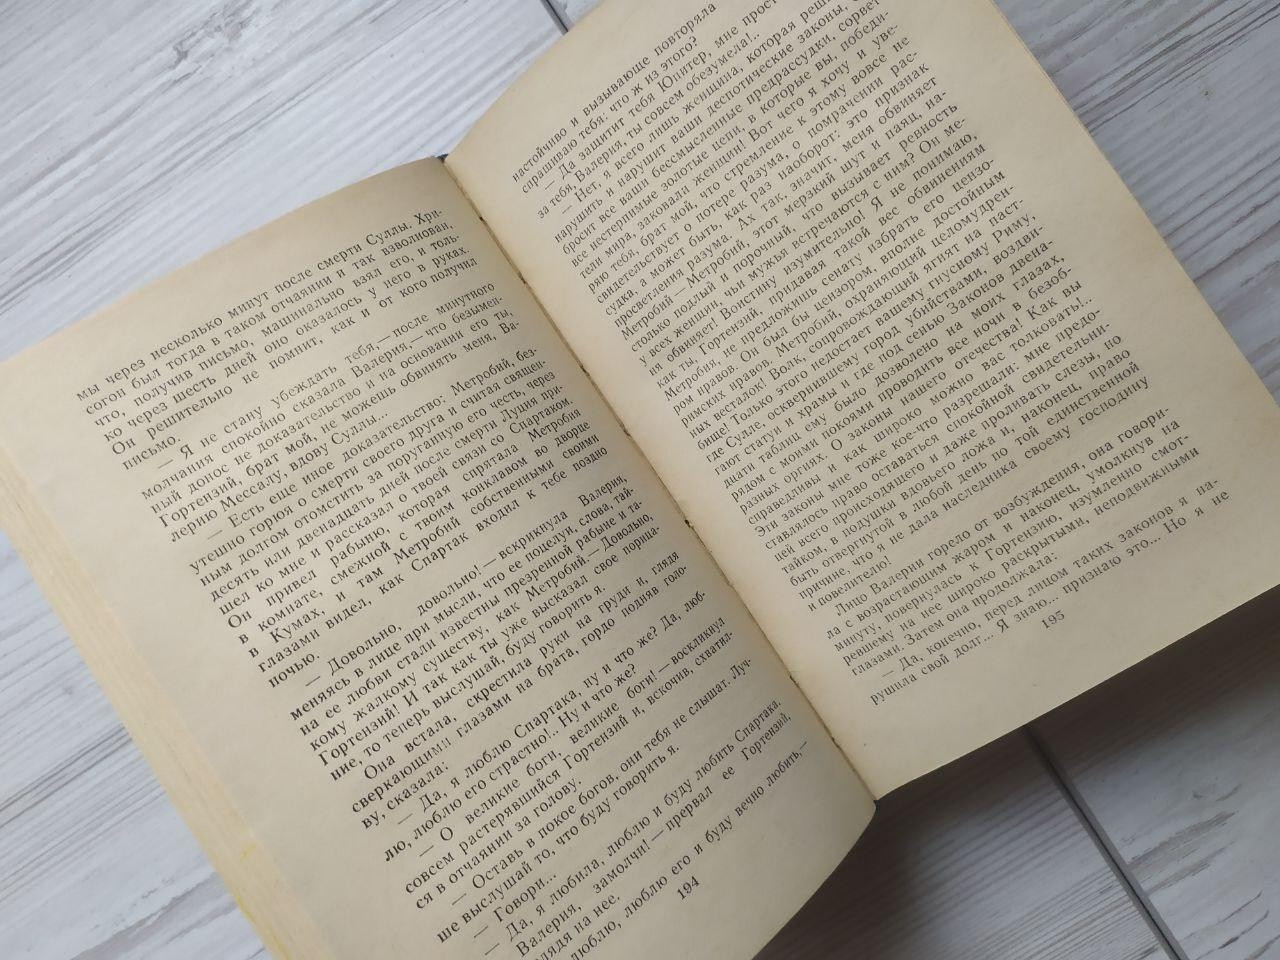 мы через несколько минут после смерти Суллы. Хри-
согон был тогда в таком отчаянии и так взволнован,
что, получив письмо, машинально взял его, и толь-
ко через шесть дней оно оказалось у него в руках.
Он решительно не помнит, как и от кого получил
письмо.
— Я не стану убеждать тебя,— после минутного
молчания спокойно сказала Валерия,— что безымен-
ный донос не доказательство и на основании его ты,
Гортензий, брат мой, не можешь обвинять меня, Ва-
лерию Мессалу, вдову Суллы...
— Есть еще иное доказательство: Метробий, без-
утешно горюя о смерти своего друга и считая священ-
ным долгом отомстить за поруганную его честь, через
десять или двенадцать дней после смерти Луция при-
шел ко мне и рассказал о твоей связи со Спартаком.
Он привел рабыню, которая спрятала Метробия
в комнате, смежной с твоим конклавом во дворце
в Кумах, и там Метробий собственными своими
глазами видел, как Спартак входил к тебе поздно
ночью.
— Довольно, довольно!— вскрикнула Валерия,
меняясь в лице при мысли, что ее поцелуи, слова, тай-
на ее любви стали известны презренной рабыне и та-
кому жалкому существу, как Метробий.— Довольно,
Гортензий! И так как ты уже высказал свое порица-
ние, то теперь выслушай, буду говорить я.
Она встала, скрестила руки на груди и, глядя
сверкающими глазами на брата, гордо подняв голо-
ву, сказала:
— Да, я люблю Спартака, ну и что же? Да, люб-
лю, люблю его страстно!.. Ну и что же?
— О великие боги, великие боги!— воскликнул
совсем растерявшийся Гортензий и, вскочив, схватил-
ся в отчаянии за голову.
— Оставь в покое богов, они тебя не слышат. Луч-
ше выслушай то, что буду говорить я.
— Говори...
— Да, я любила, люблю и буду любить Спартака.
— Валерия, замолчи!— прервал ее Гортензий,
глядя на нее.
люблю, люблю его и буду вечно любить,—
194
настойчиво и вызывающе повторяла
спрашиваю тебя: что ж из этого?
— Да защитит тебя Юпитер, мне прост
за тебя, Валерия, ты совсем обезумела!..
— Нет, я всего лишь женщина, которая реш
нарушить и нарушит ваши деспотические законы, с
бросит все ваши бессмысленные предрассудки, сорвет
все нестерпимые золотые цепи, в которые вы, победи-
тели мира, заковали женщин! Вот чего я хочу и уве-
ряю тебя, брат мой, что стремление к этому вовсе не
свидетельствует о потере разума, о помрачении рас-
судка, а может быть, как раз наоборот: это признак
просветления разума. Ах так, значит, меня обвиняет
Метробий — Метробий, этот мерзкий шут и паяц, на-
столько подлый и порочный, что вызывает ревность
у всех женщин, чьи мужья встречаются с ним? Он ме-
ня обвиняет! Воистину изумительно! Я не понимаю,
как ты, Гортензий, придавая такой вес обвинениям
Метробия, не предложишь сенату избрать его цензо-
ром нравов. Он был бы цензором, вполне достойным
римских нравов. Метробий, охраняющий целомудрен-
ных весталок! Волк, сопровождающий ягнят на паст-
бище! Только этого недостает вашему гнусному Риму,
где Сулле, осквернившему город убийствами, воздви-
гают статуи и храмы и где под сенью Законов двена-
дцати таблиц ему было дозволено на моих глазах,
рядом с моими покоями проводить все ночи в безоб-
разных оргиях. О законы нашего отечества! Как вы
справедливы и как широко можно вас толковать!..
Эти законы мне тоже кое-что разрешали: мне предо-
ставлялось право оставаться спокойной свидетельни-
цей всего происходящего и даже проливать слезы, но
тайком, в подушки вдовьего ложа и, наконец, право
быть отвергнутой в любой день по той единственной
причине, что я не дала наследника своему господину
и повелителю!
Лицо Валерии горело от возбуждения, она говори-
ла с возрастающим жаром и наконец, умолкнув на
минуту, повернулась к Гортензию, изумленно смот-
ревшему на нее широко раскрытыми, неподвижными
глазами. Затем она продолжала:
— Да, конечно, перед лицом таких законов я на-
рушила свой долг... Я знаю... признаю это... Но я не
195